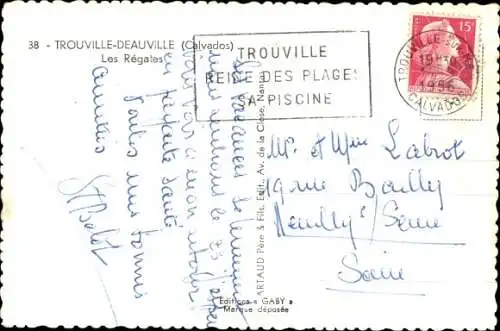 38 - TROUVILLE-DEAUVILLE (Calvados)
Les Régates
TROUVILLE
REINE DES PLAGES
SA PISCINE
15F
TROUVILLE-SUR-MER
CALVADOS
Les vacances se terminent
nous rentrons le 23. J'espère
vous voir à mon retour
en parfaite santé
Toutes mes bonnes
amitiés
ARTAUD Père & Fils, Édit., Av. de la Close, Nantes
Mr et Mme Labrot
19 rue Bailly
Neuilly s/ Seine
Seine
Editions « GABY »
Marque déposée